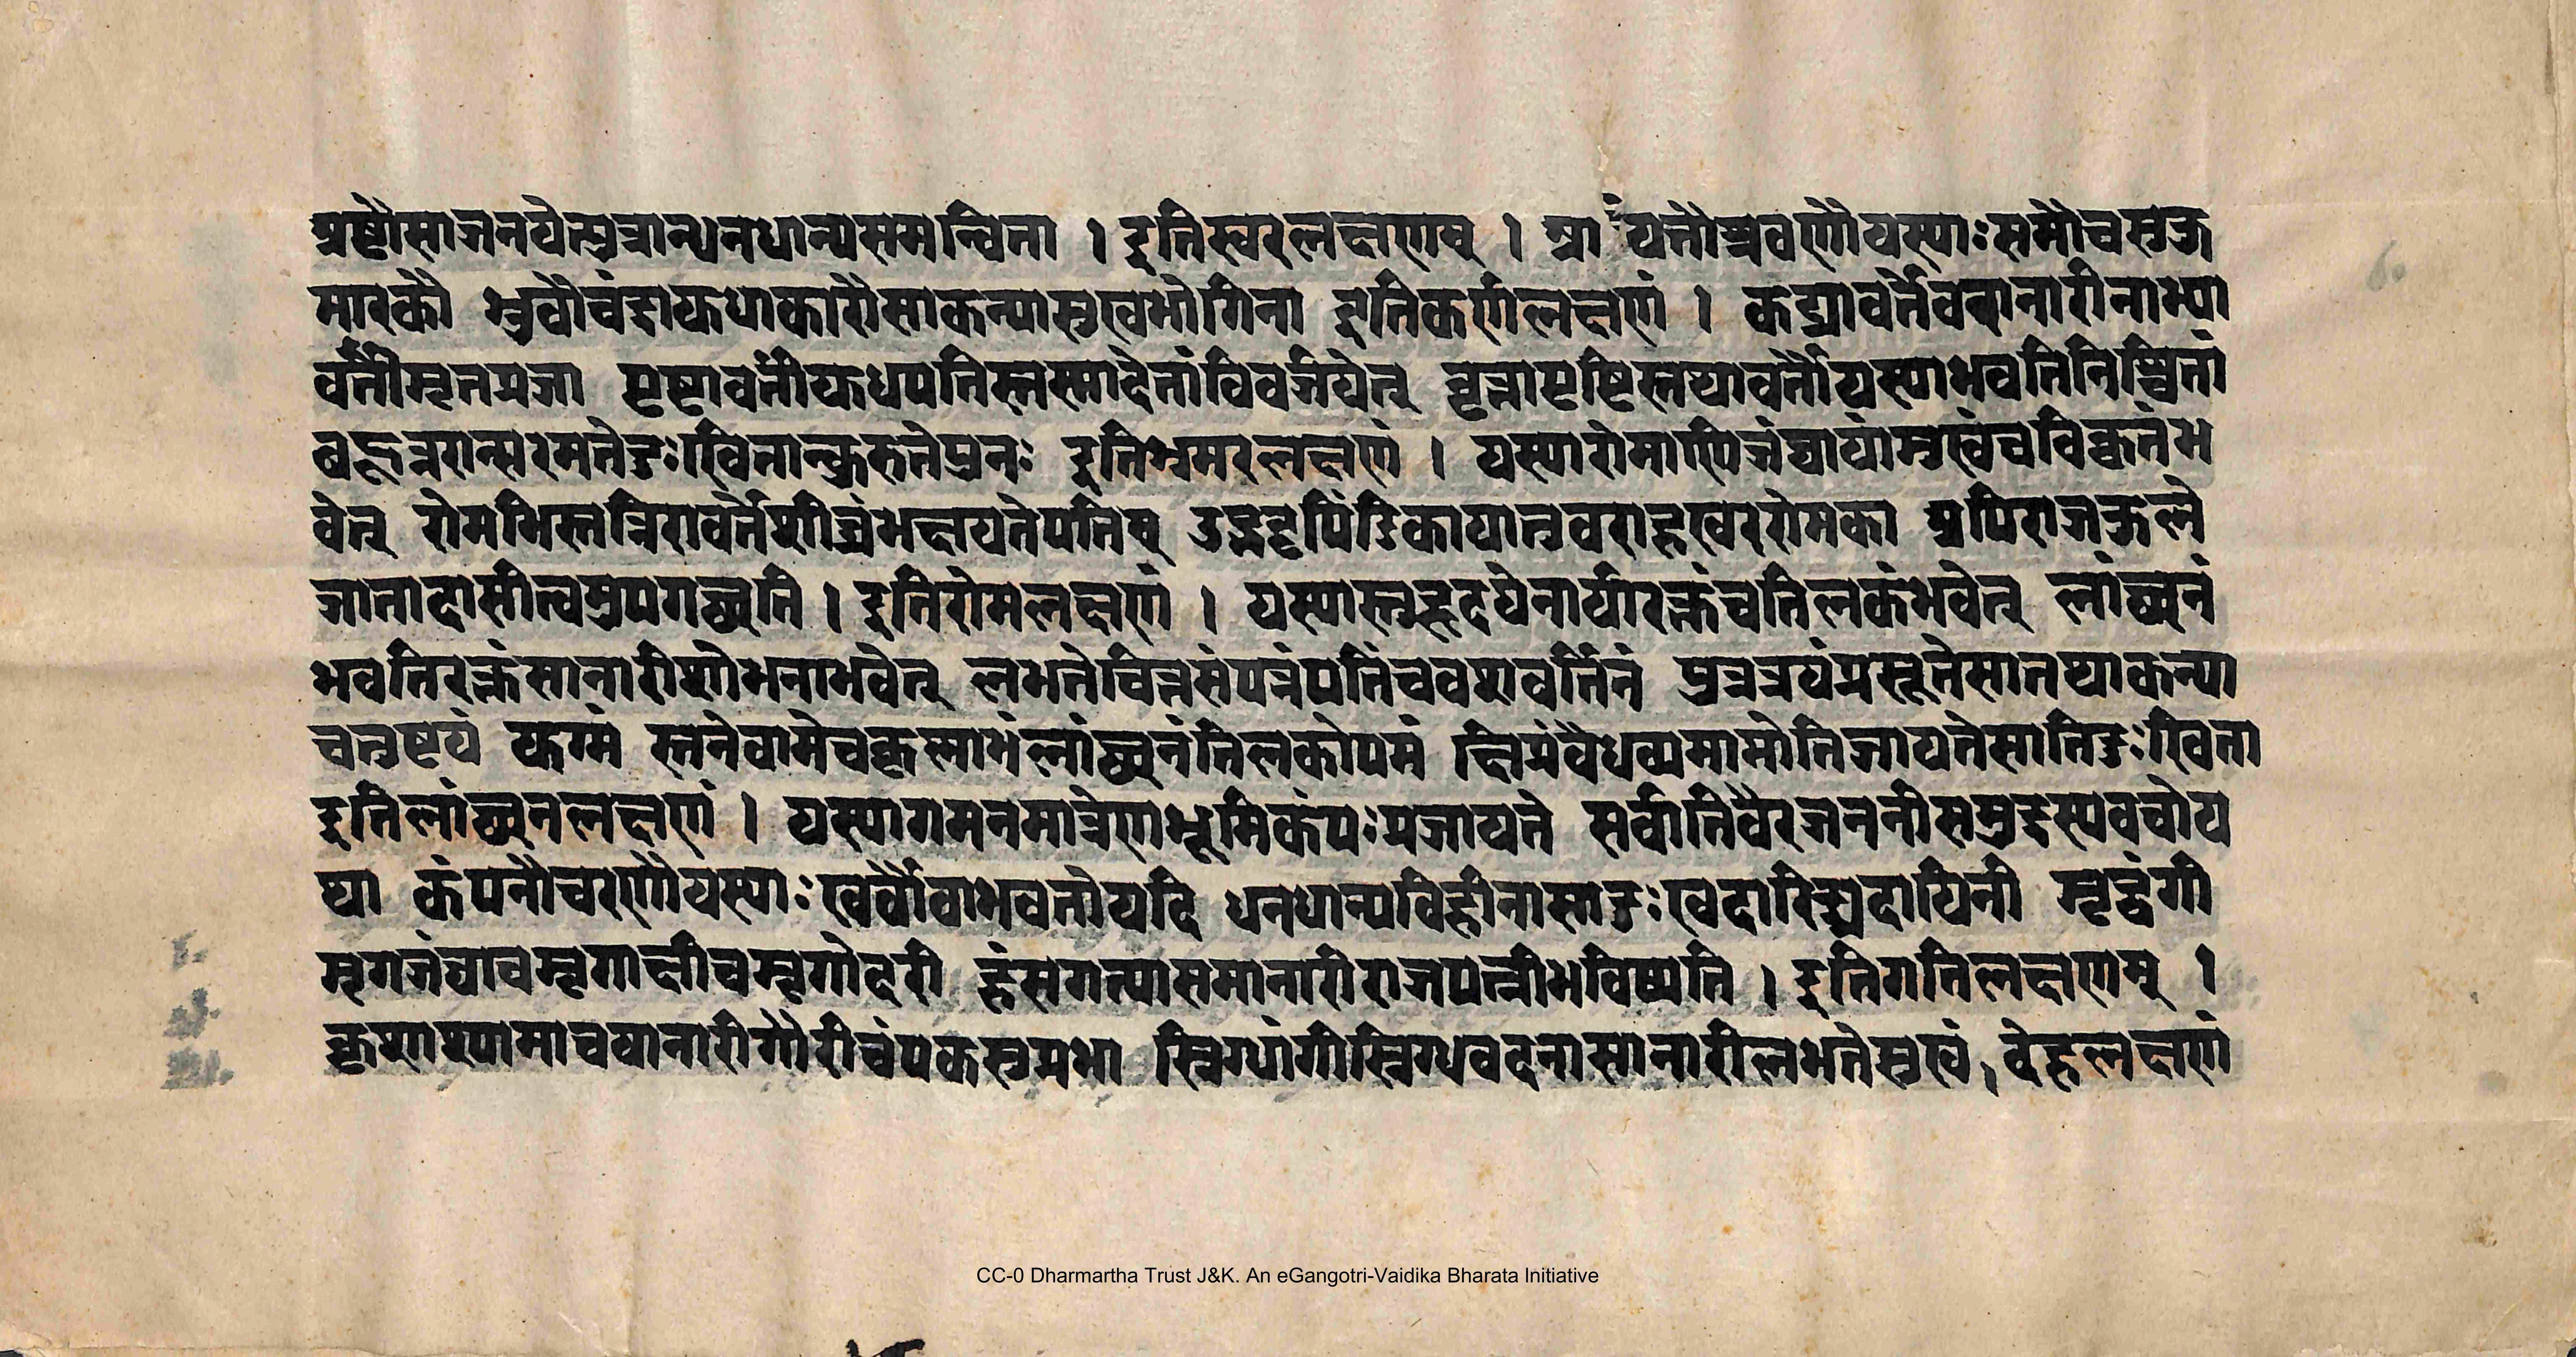 अष्टौसाजनयेत्पुत्रान्धनधान्यसमन्विता । इतिस्वरलक्षणम् । आ यतौश्रवणौयस्याःसमौचसुकु
मारकौ भ्रुवौचंद्रार्कधाकारौसाकन्यासुखभोगिना इतिकर्णलक्षणं । कट्यावर्तेवतानारीनाभ्या
वर्तीमृतप्रजा पृष्टावर्तीह्यधपतिस्तस्मादेतांविवर्जयेत् वृत्तापृष्टिस्तथावर्तौयस्याभवतिनिश्चिता
बहून्नरान्सरमतेदुःखितान्कुरुतेपुनः इतिभ्रमरलक्षणं । यस्यारोमाणिजंघायांमुखंचविकृतंभ
वेत् रोमभिस्तत्रिरावर्तेशीघ्रंभक्षयतेपतिम् उद्बद्धपिंडिकायातुवराहखररोमका अपिराजकुले
जातादासीत्वमुपगच्छति । इतिरोमलक्षणं । यस्यास्तुहृदयेनार्यारक्तंचतिलकंभवेत् लांच्छनं
भवतिरक्तंसानारीशोभनाभवेत् लभतेवित्तसंपन्नंपतिंचवशवर्तिनं पुत्रत्रयंप्रसूतेसातथाकन्या
चतुष्टयं युग्मं स्तनेवामेचकृष्णाभंलांच्छनंतिलकोपमं क्षिप्रंवैधव्यमाप्नोतिजायतेसातिदुःखिता
इतिलांच्छनलक्षणं । यस्यागमनमात्रेणभूमिकंपःप्रजायते सर्वातिवैरजननीसमुद्रस्यवचोय
था कंपनौचरणौयस्याःखर्वौवाभवतोयदि धनधान्यविहीनासादुःखदारिद्र्यदायिनी मृद्वंगी
मृगजंघाचमृगाक्षीचमृगोदरी हंसगत्यासमानारीराजपत्नीभविष्यति । इतिगतिलक्षणम् ।
कृष्णाश्यामाचयानारीगौरीचंपकसुप्रभा स्निग्धांगीस्निग्धवदनासानारीलभतेसुखं । देहलक्षणं
CC-0 Dharmartha Trust J&K. An eGangotri-Vaidika Bharata Initiative